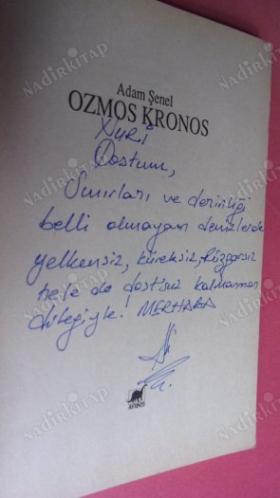 Adam Şenel
OZMOS KRONOS
NURİ
Dostum,
Sınırları ve derinliği
belli olmayan denizlerde
yelkensiz, küreksiz, rüzgarsız
hele de dostsuz kalmaman
dileğiyle! MERHABA
AYRINTI